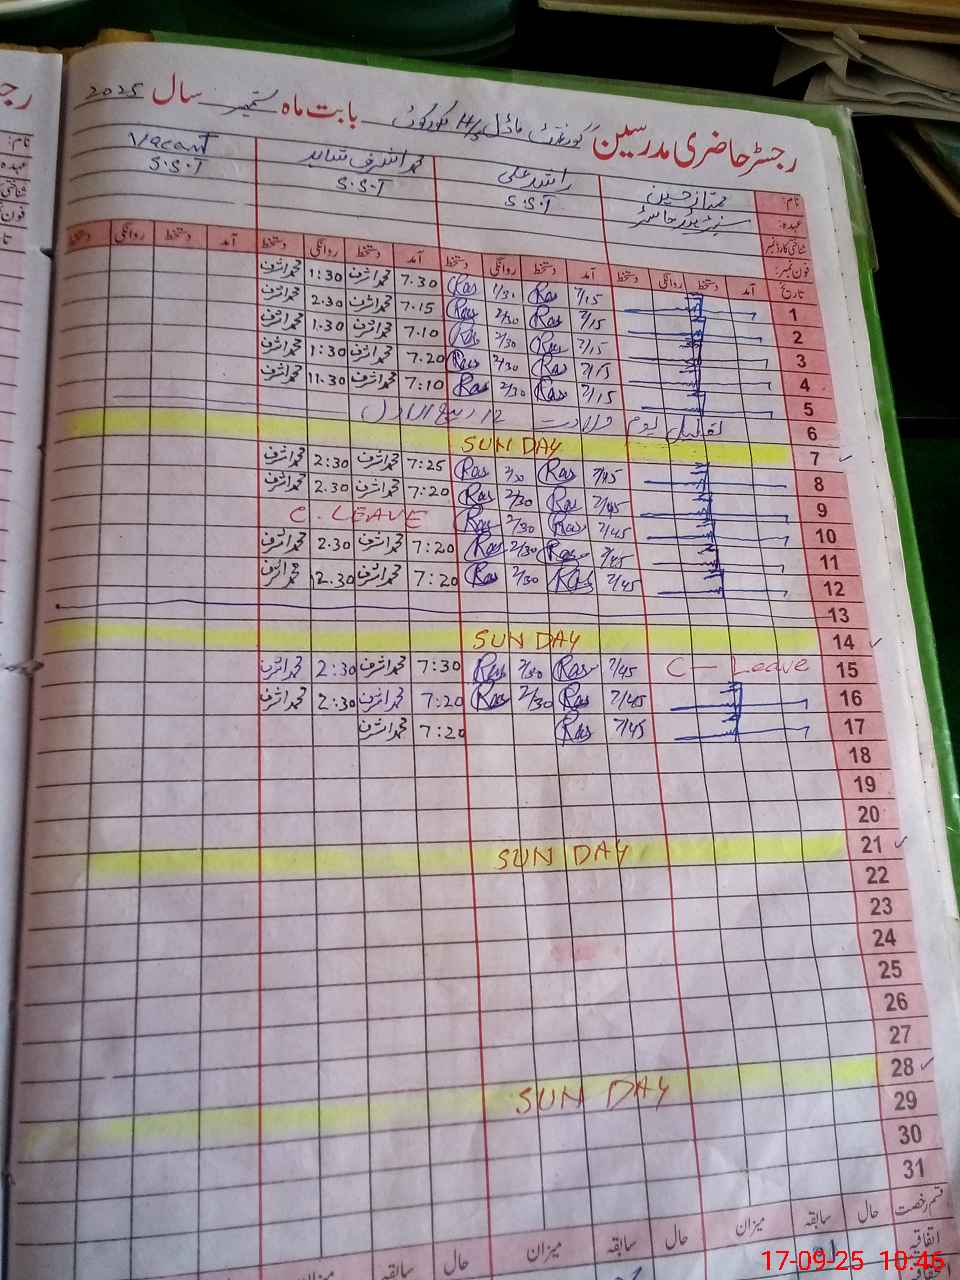 رجسٹر حاضری مدرسین گورنمنٹ ماڈل H/S بابت ماہ ستمبر سال 2025
نام: ممتاز حسین راشد علی محمد اشرف شاہد Vacant
عہدہ: S.S.T S.S.T S.S.T
شناختی کارڈ نمبر
فون نمبر:
تاریخ آمد دستخط روانگی دستخط آمد دستخط روانگی دستخط آمد دستخط روانگی دستخط آمد دستخط روانگی دستخط
1 7/15 Ras 1/30 Ras 7.30 محمد اشرف 1:30 محمد اشرف
2 7/15 Ras 2/30 Ras 7.15 محمد اشرف 2.30 محمد اشرف
3 7/15 Ras 2/30 Ras 7.10 محمد اشرف 1.30 محمد اشرف
4 7/15 Ras 2/30 Ras 7.20 محمد اشرف 1:30 محمد اشرف
5 7/15 Ras 2/30 Ras 7:10 محمد اشرف 11.30 محمد اشرف
6 تعطیل یوم ولادت 12 ربیع الاول
7 SUNDAY
8 7/15 Ras 2/30 Ras 7:25 محمد اشرف 2:30 محمد اشرف
9 7/45 Ras 2/30 Ras 7:20 محمد اشرف 2.30 محمد اشرف
10 7/45 Ras 2/30 Ras C. LEAVE
11 7/45 Ras 2/30 Ras 7:20 محمد اشرف 2:30 محمد اشرف
12 7/45 Ras 2/30 Ras 7:20 محمد اشرف 12.30 محمد اشرف
13
14 SUNDAY
15 C - Leave 7/45 Ras 2/30 Ras 7:30 محمد اشرف 2:30 محمد اشرف
16 7/45 Ras 2/30 Ras 7:20 محمد اشرف 2:30 محمد اشرف
17 7/45 Ras 7:20 محمد اشرف
18
19
20
21 SUNDAY
22
23
24
25
26
27
28 SUNDAY
29
30
31
قسم رخصت حال سابقہ میزان حال سابقہ میزان حال سابقہ میزان حال
اتفاقیہ
17-09-25 10:46